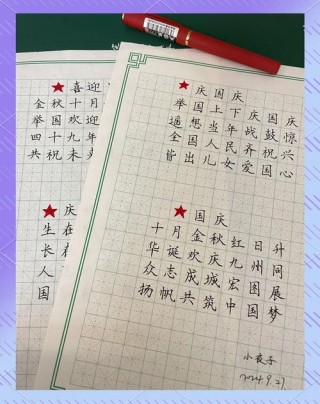 喜迎
金秋十月
举国欢迎
四十九年
共祝未
庆
生在
长在
人
国
庆国庆
举国上下庆国庆
遥想当年战鼓惊
全国人民齐祝兴
皆出儿女爱国心
国庆
十月金秋红日升
华诞欢庆九州同
众志成城宏图展
扬帆共筑中国梦
小夜子
2024.9.27.